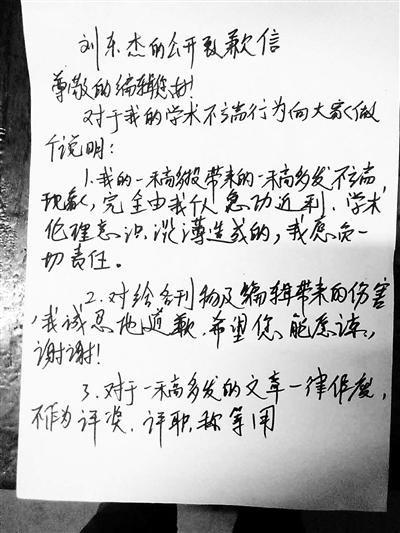 刘东杰的公开致歉信
尊敬的编辑们好！
对于我的学术不端行为向大家做
个说明：
1.我的一稿多投带来的一稿多发不端
现象，完全由我个人急功近利、学术
伦理意识淡薄造成的，我愿负一
切责任。
2.对给各刊物及编辑带来的伤害
，我诚恳地道歉，希望您能原谅，
谢谢！
3.对于一稿多发的文章一律作废，
不作为评奖、评职称等用